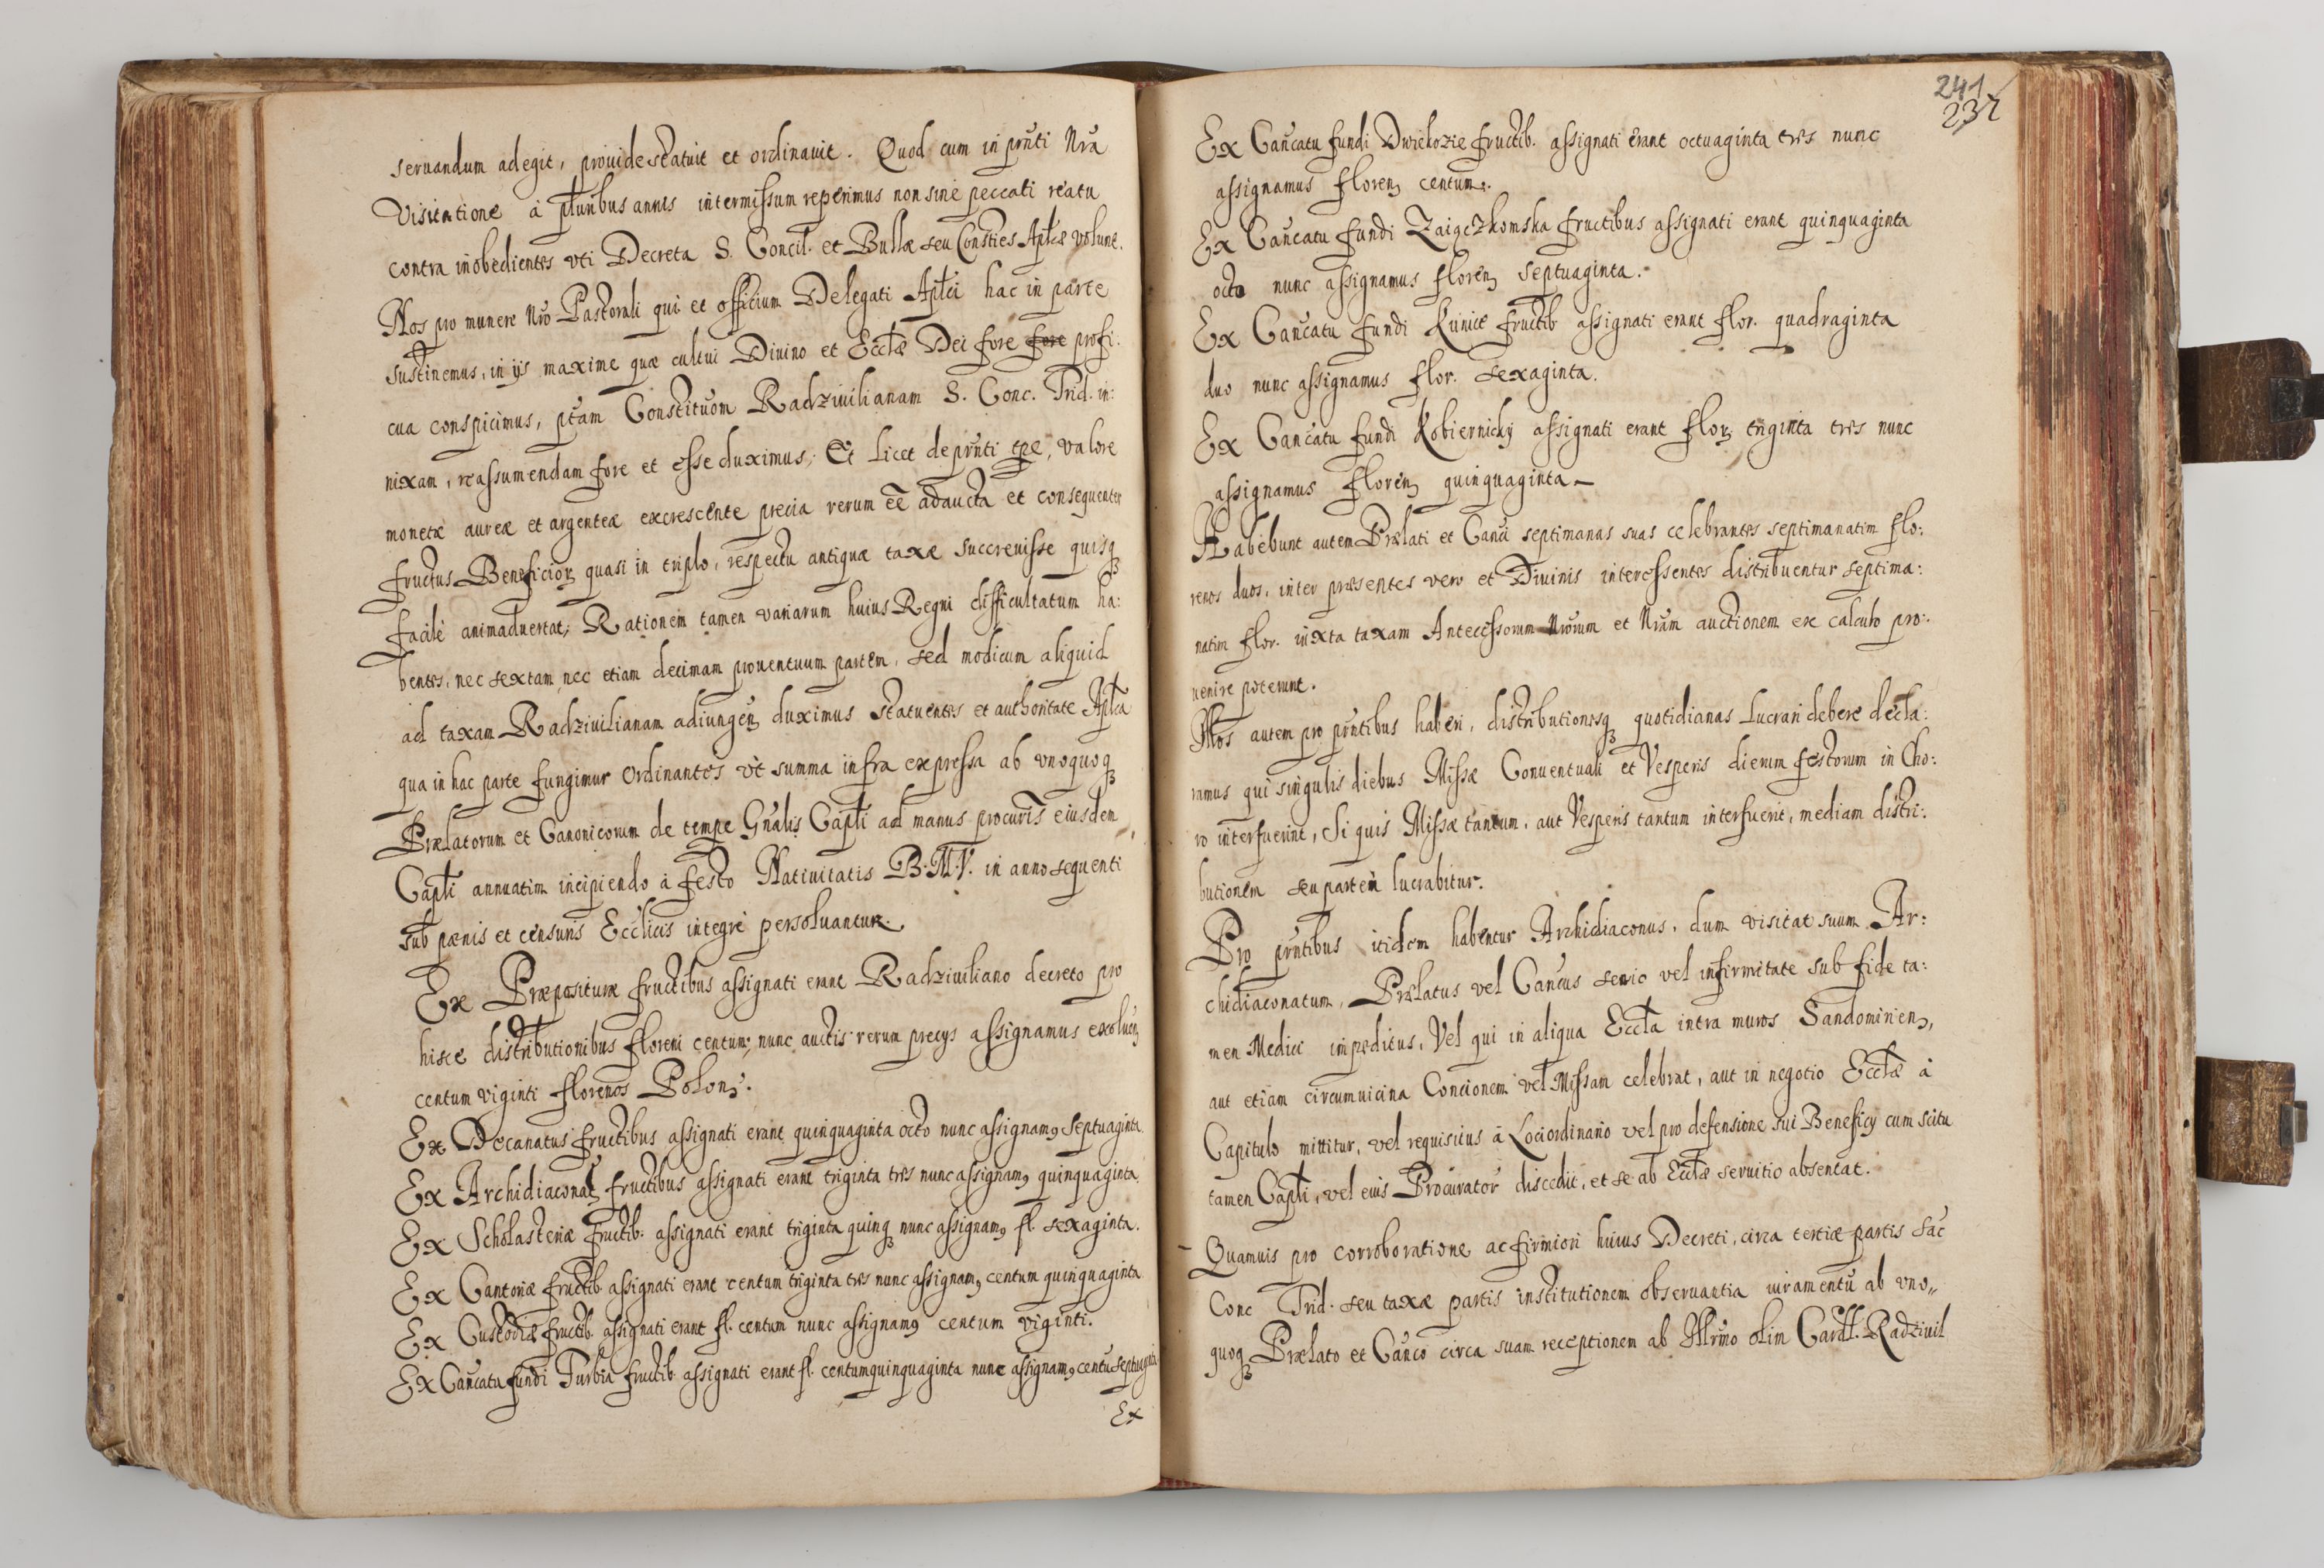 seruandum adegit, prouide statuit et ordinauit. Quod cum in prñti Nrã
Visitatione à pluribus annis intermissum reperimus non sine peccati reatu
contra inobedientes vti Decreta S. Concil. et Bullæ seu Consties Aplcæ volunt.
Nos pro munere Nrõ Pastorali qui et officium Delegati Aplci hac in parte
sustinemus, in ijs maxime quæ cultui Diuino et Ecclæ Dei fore fore profi:
cua conspicimus, ptam Constituõm Radziuilianam S. Conc. Trid. in:
nixam, reassumendam fore et esse duximus; Et licet de prñti tpe, valore
monetæ aureæ et argenteæ excrescente precia rerum eẽ adaucta et consequenter
fructus Beneficioꝝ quasi in triplo, respectu antiquæ taxæ succreuisse quisqꝫ
facile animaduertat; Rationem tamen variarum huius Regni difficultatum ha:
bentes, nec sextam nec etiam decimam prouentuum partem, sed modicum aliquid
ad taxam Radziuilianam adiungenꝫ duximus statuentes et authoritate Aplca
qua in hac parte fungimur Ordinantes vt summa infra expressa ab vnoquoqꝫ
Prælatorum et Canonicorum de tempe Gnalis Capli ad manus procuris eiusdem
Capli annuatim incipiendo à festo Natiuitatis B.M.V. in anno sequenti
sub pænis et censuris Ecclicis integrè persoluantur.
Ex Præpositura fructibus assignati erant Radziuiliano decreto pro
hisce distributionibus floreni centum; nunc auctis rerum precys assignamus exoluenꝫ
centum viginti florenos Polonꝫ.
Ex Decanatus fructibus assignati erant quinquaginta octo nunc assignamꝰ septuaginta
Ex Archidiaconatꝰ fructibus assignati erant triginta tres nunc assignamꝰ quinquaginta
Ex Scholasteriæ fructib. assignati erant triginta quinqꝫ nunc assignamꝰ fl. sexaginta.
Ex Cantoriæ fructib. assignati erant centum triginta tres nunc assignamꝰ centum quinquaginta
Ex Custodiæ fructib. assignati erant fl. centum nunc assignamꝰ centum viginti.
Ex Cañcatu fundi Turbia fructib. assignati erant fl. centumquinquaginta nunc assignamꝰ centũ septuaginta
Ex
241
237
Ex Cañcatu fundi Dwiekozie fructib. assignati erant octuaginta tres nunc
assignamus florenꝫ centum.
Ex Cañcatu fundi Zaiączkowska fructibus assignati erant quinquaginta
octo nunc assignamus florenꝫ septuaginta.
Ex Cañcatu fundi Kunice fructib assignati erant flor. quadraginta
duo nunc assignamus flor. sexaginta.
Ex Cañcatu fundi Kobiernicky assignati erant florꝫ triginta tres nunc
assignamus florenꝫ quinquaginta
Habebunt autem Prælati et Canci septimanas suas celebrantes septimanatim flo:
renos duos, inter præsentes vero et Diuinis interessentes distribuentur septima:
natim flor. iuxta taxam Antecessorum Nrorum et Nram auctionem ex calculo pro:
uenire poterunt.
Illos autem pro prñtibus haberi, distributionesqꝫ quotidianas Lucrari debere decla:
ramus qui singulis diebus Missæ Conuentuali et Vesperis dierum festorum in Cho:
ro interfuerint, Si quis Missæ tantum, aut Vesperis tantum interfuerit, mediam distri:
butionem seu partem lucrabitur.
Pro prñtibus itidem habentur Archidiaconus, dum visitat suum Ar:
chidiaconatum, Prælatus vel Cancus senio vel infirmitate sub fide ta:
men Medici impeditus, Vel qui in aliqua Eccla intra muros Sandomirienꝫ,
aut etiam circumuicina Concionem vel Missam celebrat, aut in negotio Ecclæ à
Capitulo mittitur, vel requisitus à Lociordinario vel pro defensione sui Beneficy cum scitu
tamen Capli, vel eius Procurator discedit, et se ab Ecclæ seruitio absentat.
Quamuis pro corroboratione ac firmiori huius Decreti, circa tertiæ partis Sac
Conc Trid. seu taxæ partis institutionem obseruantia iuramentũ ab vno„
quoqꝫ Prælato et Canco circa suam receptionem ab Illrmo olim Cardl. Radziuil